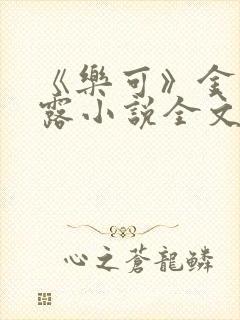 《樂可》金
露小說全文
心之蒼龍鱗